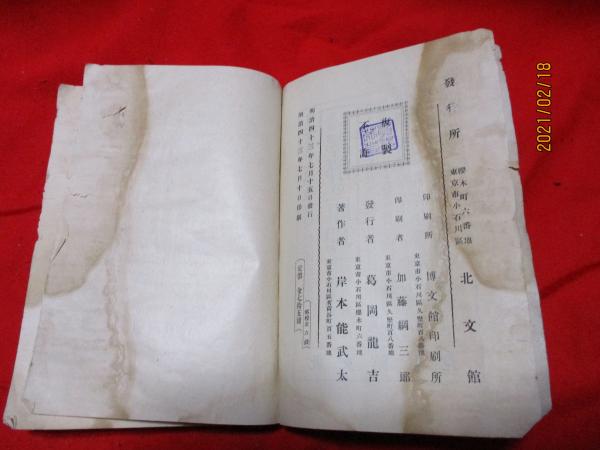 明治四十三年七月十日印刷
明治四十三年七月十五日發行
不許
複製
著作者 岸本能武太
發行者 葛岡龍吉
東京市小石川區櫻木町六番地
印刷者 加藤綱三郎
東京市小石川區久堅町百八番地
印刷所 博文館印刷所
東京市小石川區久堅町百八番地
發行所
東京市小石川區
櫻木町六番地
北文館
2021/02/18